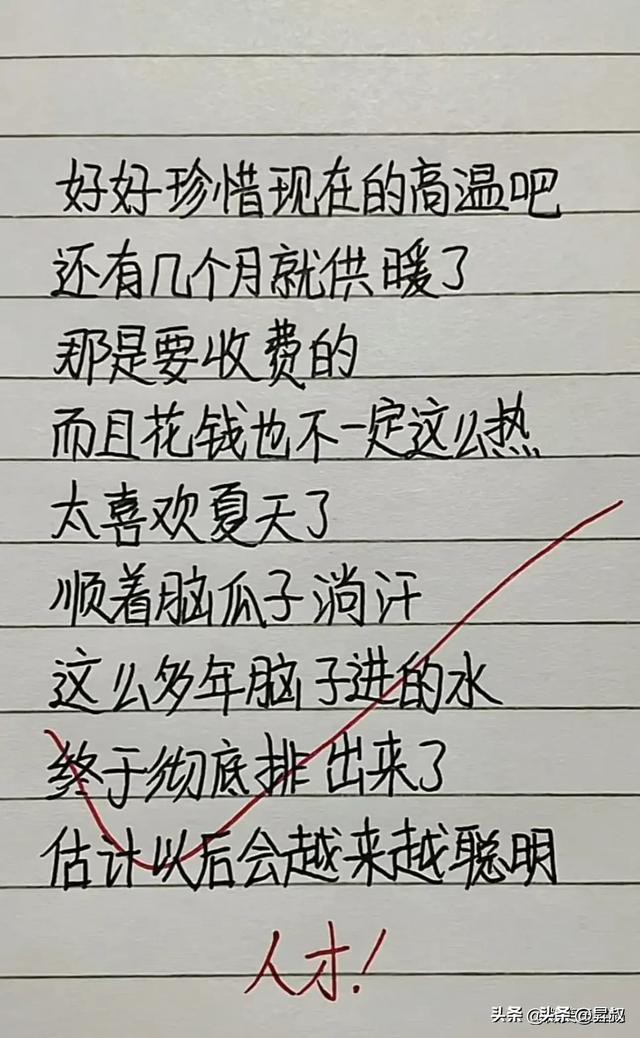 好好珍惜现在的高温吧
还有几个月就供暖了
那是要收费的
而且花钱也不一定这么热
太喜欢夏天了
顺着脑瓜子淌汗
这么多年脑子进的水
终于彻底排出来了
估计以后会越来越聪明
人才!
头条 @头条@昙叔